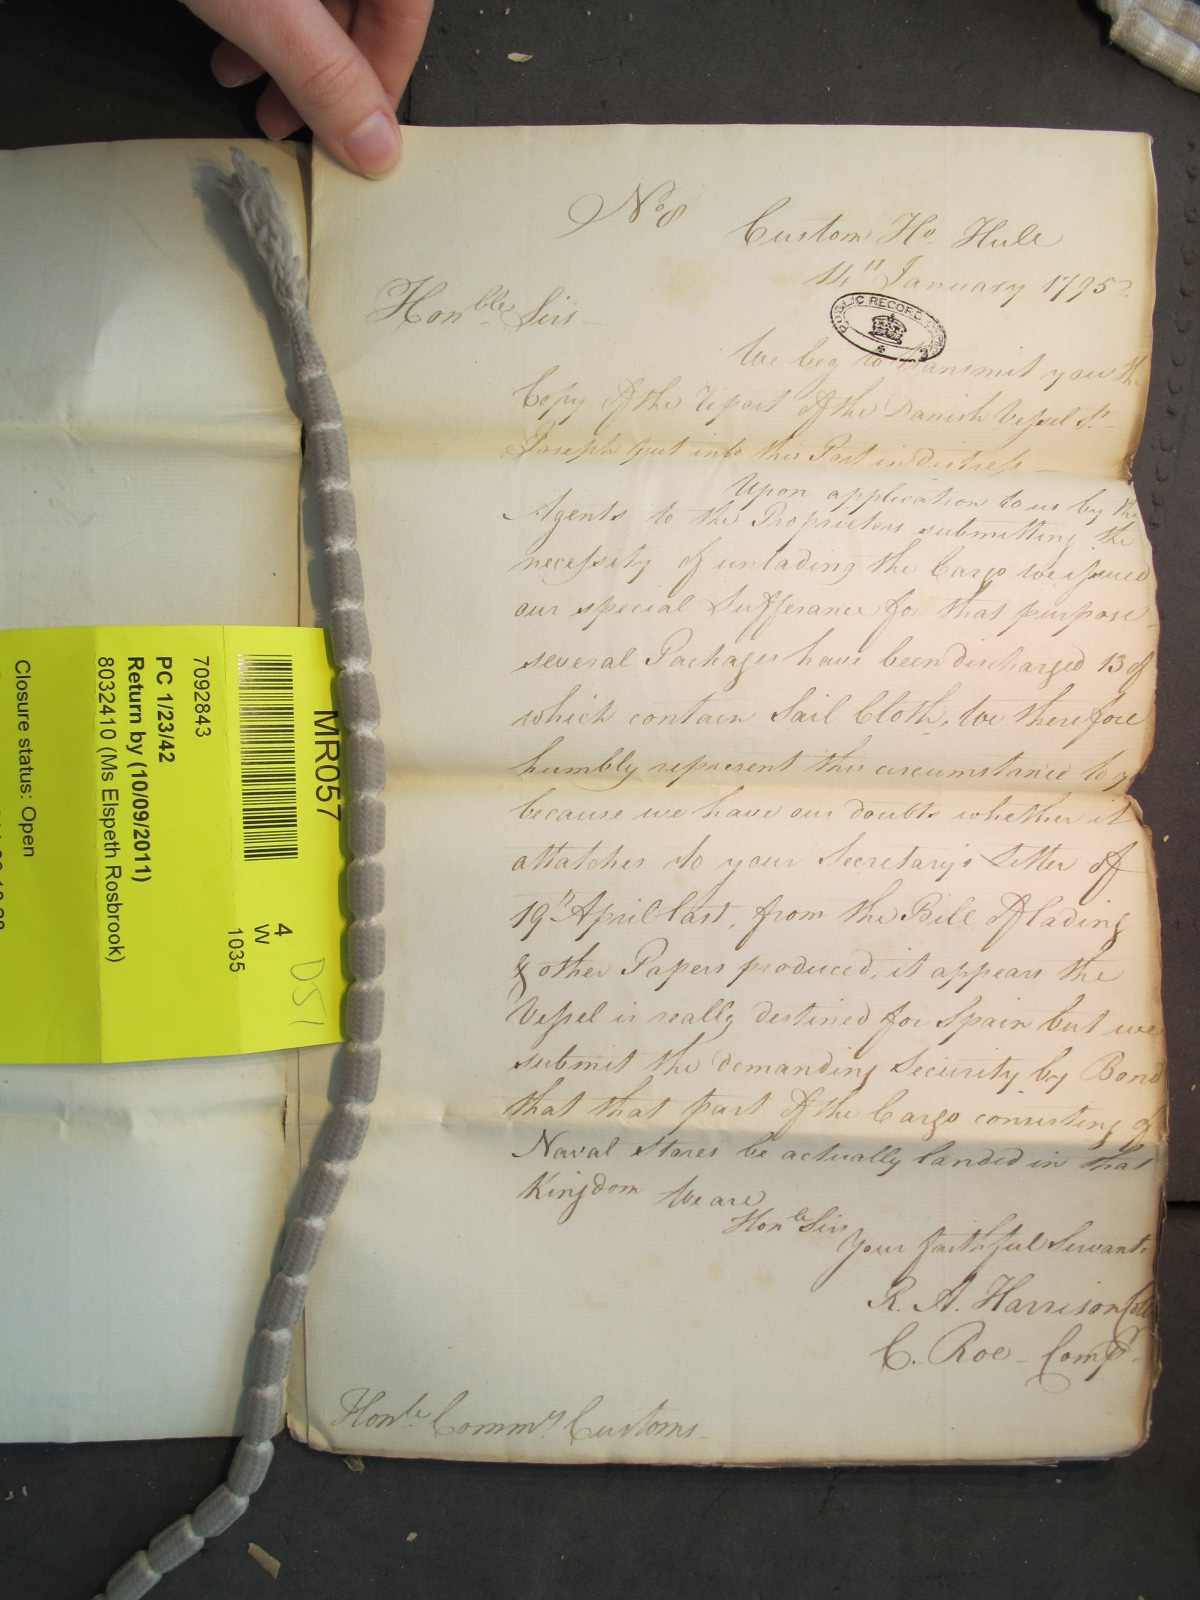 No 8
Custom Ho Hull
14" January 1795
Honble Sirs
PUBLIC RECORD OFFICE
We beg to transmit you the
Copy of the Report of the Danish Vessel St
Joseph put into this Port in distress
Upon application to us by the
Agents to the Proprietors submitting the
necessity of unlading the Cargo we issued
our special Sufferance for that purpose
several Packages have been discharged 13 of
which contain Sail Cloth, We therefore
humbly represent this circumstance to y
because we have our doubts whether it
attatches to your Secretary's Letter of
19" April last, from the Bill of lading
& other Papers produced, it appears the
Vessel is really destined for Spain but we
submit the demanding Security by Bond
that that part of the Cargo consisting of
Naval Stores be actually landed in that
Kingdom We are
Honble Sirs
Your faithful Servants
R. A. Harrison Coll
C. Roe - Compr
Honble Commrs Customs
MR057
7092843
PC 1/23/42
Return by (10/09/2011)
8032410 (Ms Elspeth Rosbrook)
Closure status: Open
4
W
1035
D51